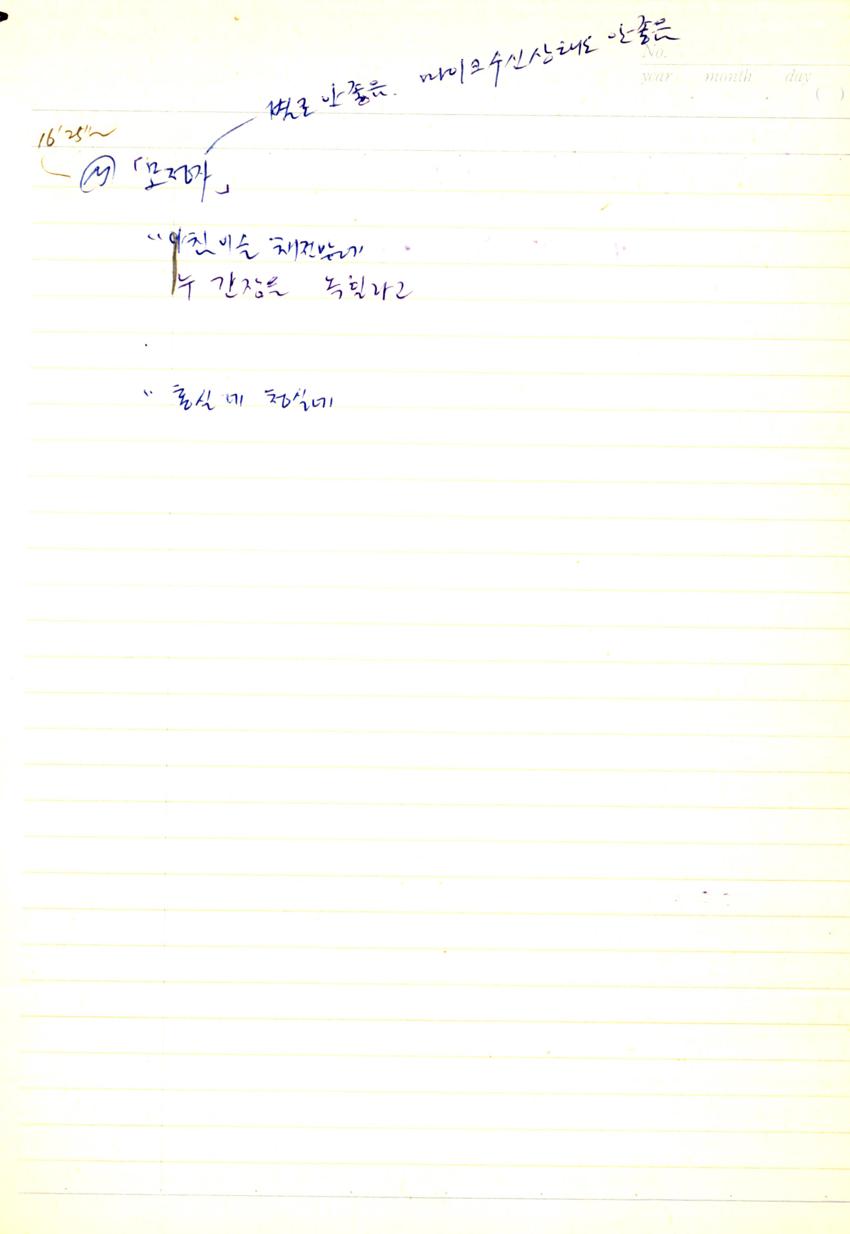 별로 안좋음. 마이크수신상태도 안좋음
No.
year month day
( )
16'25"~
「모정가」
"아침이슬 채전밭에
누 간장을 녹힐라고
" 홍실네 청실네